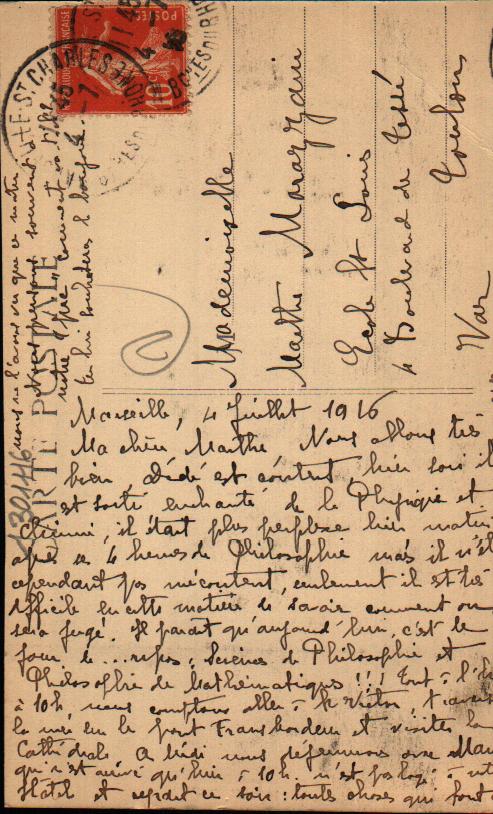 Marseille, 4 Juillet 1916
Ma chère Marthe Nous allons très
bien, Dédé est content hier soir il
est sorti enchanté de la Physique et
Chimie, il était plus perplexe hier matin
après ses 4 heures de Philosophie mais il n'est
cependant pas mécontent, seulement il est très
difficile en cette matière de savoir comment on
sera jugé. Il parait qu'aujourd'hui, c'est le
jour de ... repos : Sciences de Philosophie et
Philosophie de Mathématiques !!! Tout à l'h
à 10h, nous comptons aller à
la mer sur le pont Transbordeur et visiter la
Cathédrale A midi nous déjeunons avec
qui n'est arrivé qu'hier à 10h. n'est pas logé à
Hôtel et repart ce soir : toutes choses qui font
nous ne l'avons vu que ce matin
Nous pensons souvent à
notre
CARTE POSTALE
Mademoiselle
Marthe
Ecole St Louis
4 Boulevard de Tessé
Toulon
Var
POSTES
10
ST CHARLES
BCHES DU RH